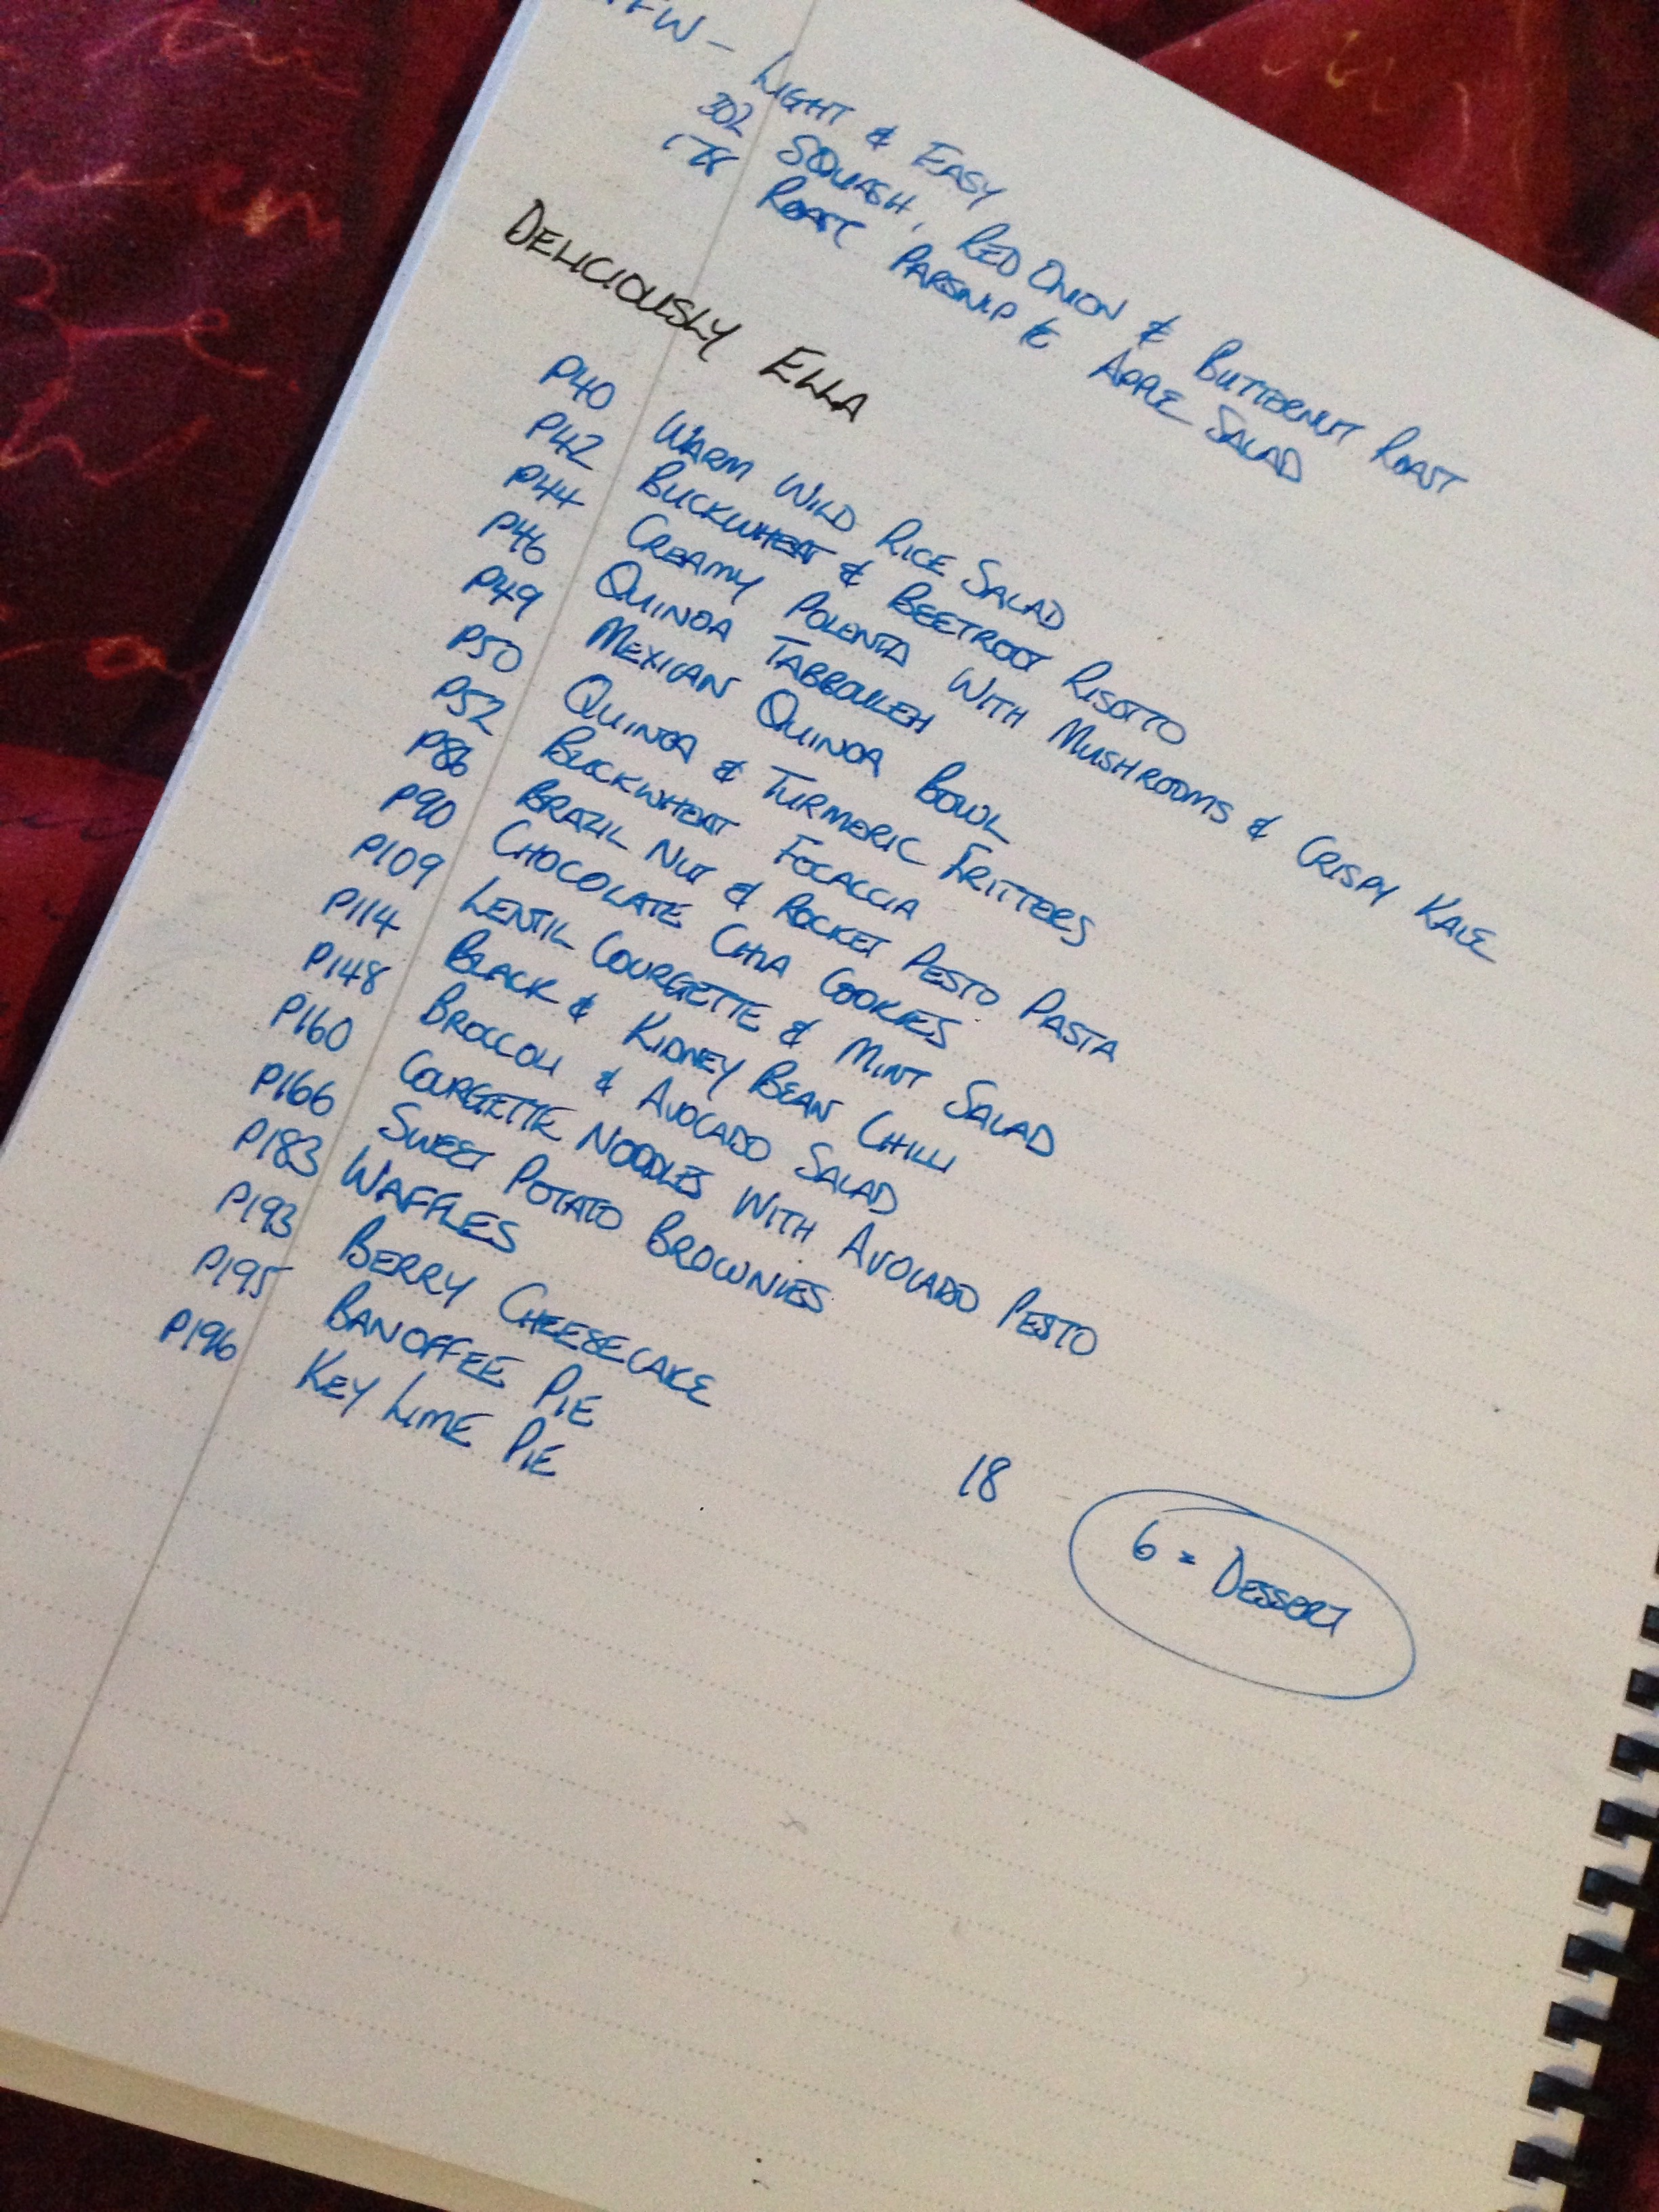 - LIGHT & EASY
302 SQUASH, RED ONION & BUTTERNUT ROAST
178 ROAST PARSNIP & APPLE SALAD
DELICIOUSLY ELLA
P40 WARM WILD RICE SALAD
P42 BUCKWHEAT & BEETROOT RISOTTO
P44 CREAMY POLENTA WITH MUSHROOMS & CRISPY KALE
P46 QUINOA TABBOULEH
P49 MEXICAN QUINOA BOWL
P50 QUINOA & TURMERIC FRITTERS
P52 BUCKWHEAT FOCACCIA
P86 BRAZIL NUT & ROCKET PESTO PASTA
P90 CHOCOLATE CHIA COOKIES
P109 LENTIL COURGETTE & MINT SALAD
P114 BLACK & KIDNEY BEAN CHILLI
P148 BROCCOLI & AVOCADO SALAD
P160 COURGETTE NOODLES WITH AVOCADO PESTO
P166 SWEET POTATO BROWNIES
P183 WAFFLES
P193 BERRY CHEESECAKE
P195 BANOFFEE PIE
P196 KEY LIME PIE
18
6 = DESSERT